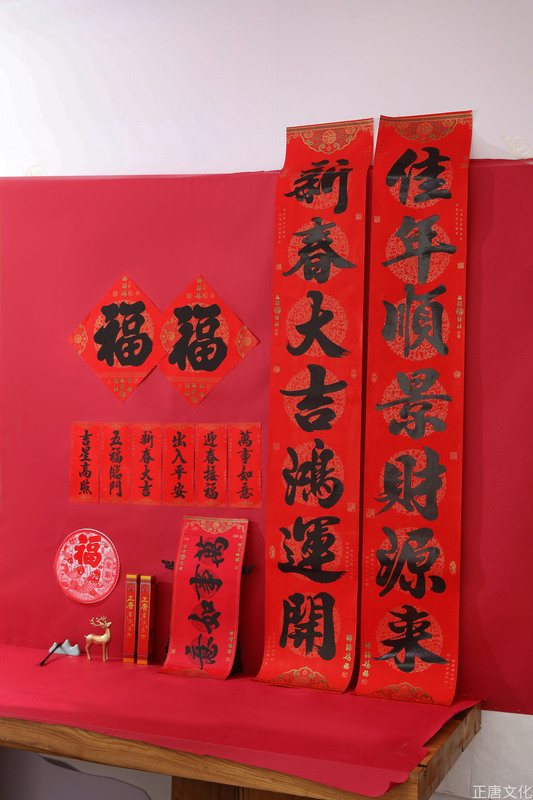 佳年順景財源来
新春大吉鴻運開
福
福
萬事如意
迎春接福
出入平安
新春大吉
五福臨門
吉星高照
萬事如意
福
正唐
正唐
正唐文化